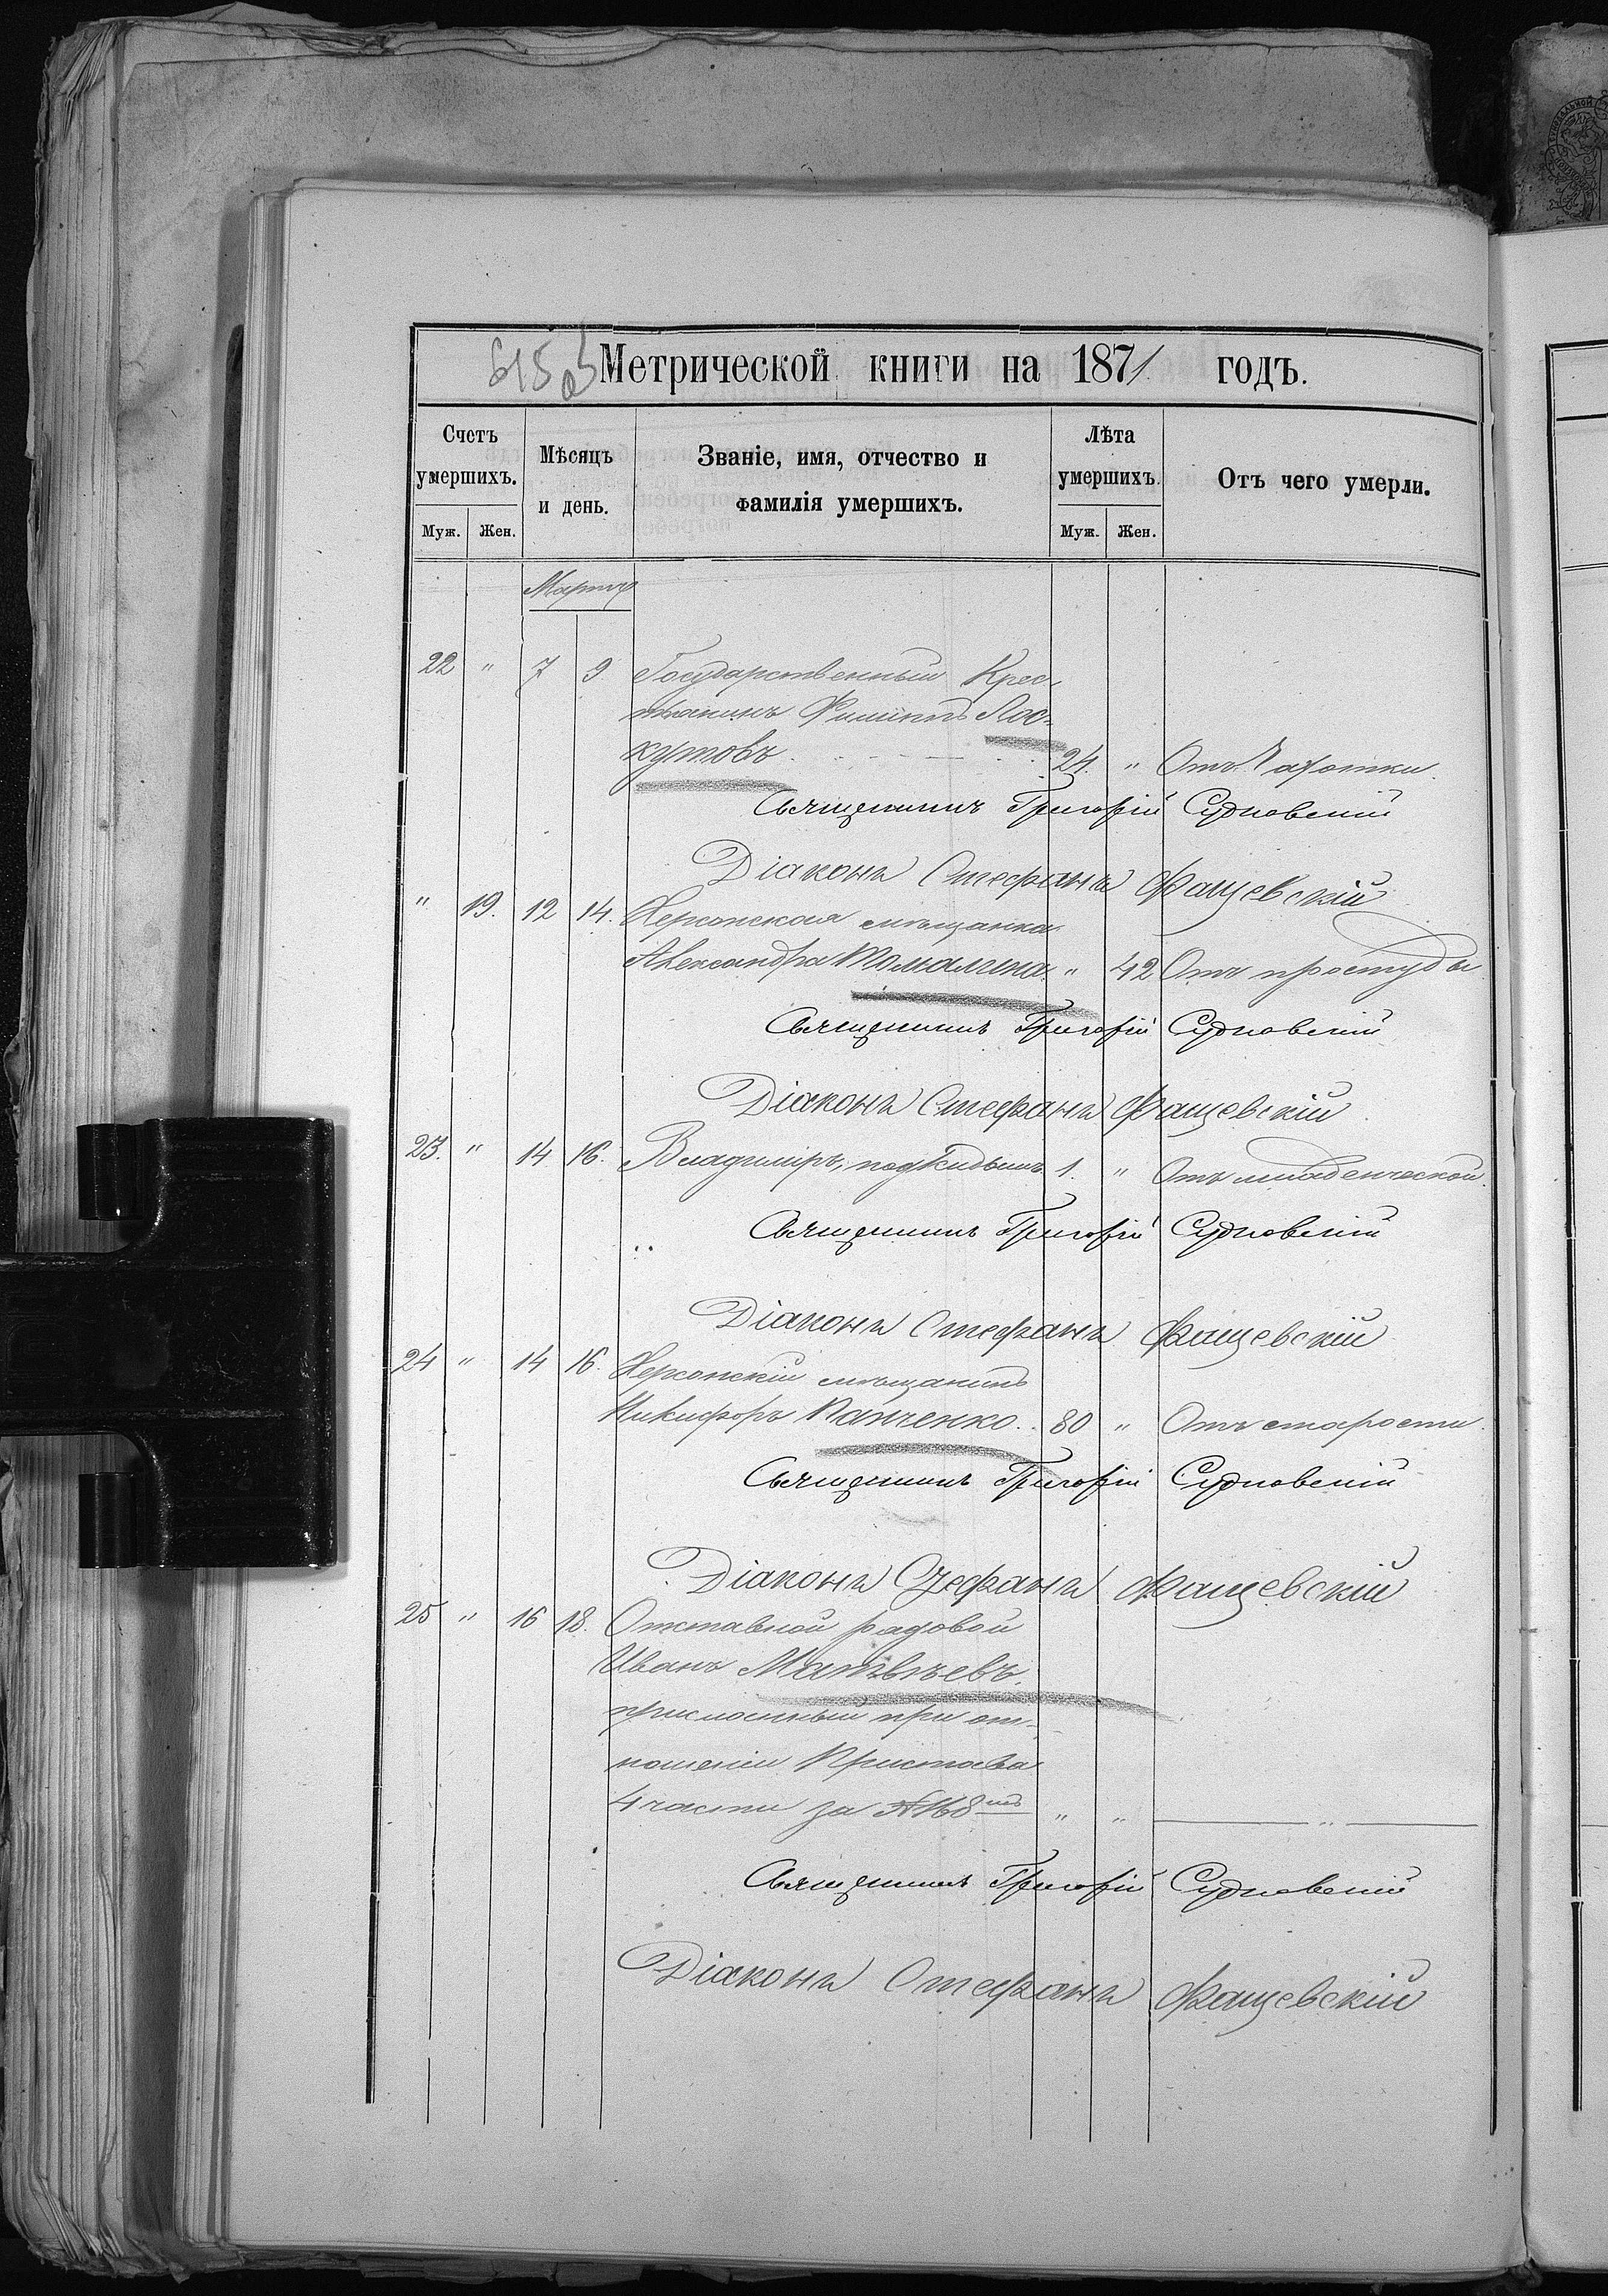 615 об
Метрической книги на 1871 годъ.
Счетъ умершихъ.
Муж. Жен.
Мѣсяцъ и день.
Званіе, имя, отчество и фамилія умершихъ.
Лѣта умершихъ.
Муж. Жен.
Отъ чего умерли.
Марта
22 " 7 9 Государственный Крес-
тьянинъ Филиппъ Лос-
кутовъ 24. " Отъ Чахотки.
Священникъ Григорій Судковскій
Діаконъ Стефанъ Фащевскій
" 19. 12 14. Херсонская мѣщанка
Александра Томалина " 42 Отъ простуды
Священникъ Григорій Судковскій
Діаконъ Стефанъ Фащевскій
23. " 14 16. Владиміръ, подкидышъ 1. " Отъ младенческой.
Священникъ Григорій Судковскій
Діаконъ Стефанъ Фащевскій
24 " 14 16. Херсонскій мѣщанинъ
Никифоръ Панченко. 80 " Отъ старости.
Священникъ Григорій Судковскій
Діаконъ Стефанъ Фащевскій
25 " 16 18. Отставной рядовой
Иванъ Матвѣевъ.
присланный при от-
ношеніи Пристава
4 части за № " " "
Священникъ Григорій Судковскій
Діаконъ Стефанъ Фащевскій